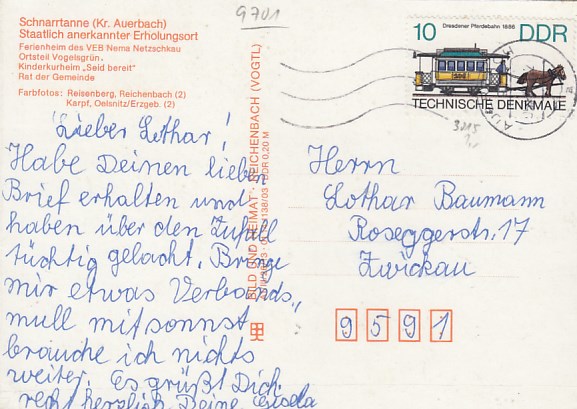 Schnarrtanne (Kr. Auerbach)
Staatlich anerkannter Erholungsort
Ferienheim des VEB Nema Netzschkau
Ortsteil Vogelsgrün.
Kinderkurheim „Seid bereit"
Rat der Gemeinde
Farbfotos: Reisenberg, Reichenbach (2)
Karpf, Oelsnitz/Erzgeb. (2)
9701
Lieber Lothar!
Habe Deinen lieben
Brief erhalten und
haben über den Zufall
tüchtig gelacht. Bringe
mir etwas Verbands„
mull mit sonst
brauche ich nichts
weiter. Es grüßt Dich
recht herzlich Deine Gisela
BILD UND HEIMAT REICHENBACH (VOGTL)
138/03 DDR 0,20 M
10 Dresdener Pferdebahn 1886 DDR
TECHNISCHE DENKMALE
Herrn
Lothar Baumann
Roseggerstr. 17
Zwickau
9591